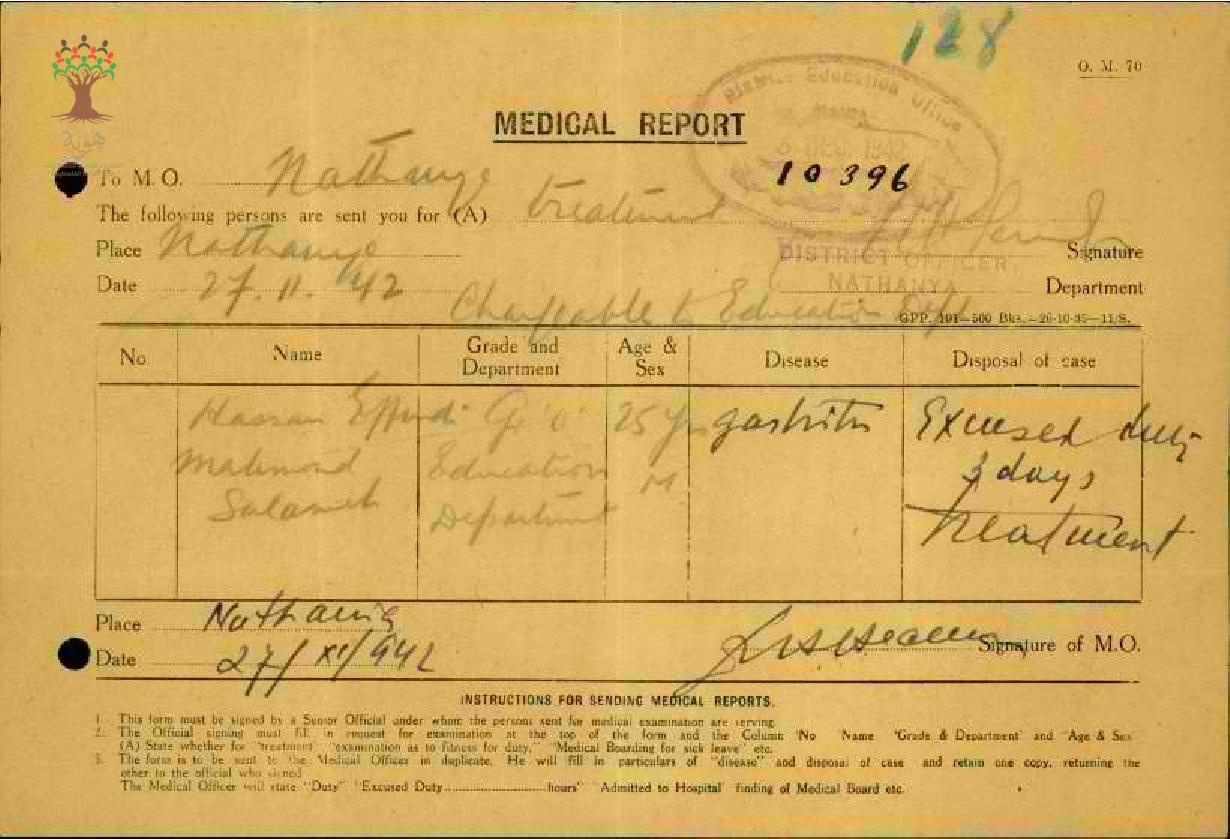 128
O. M. 70
هوية
District Education Office
DEC. 1942
MEDICAL REPORT
10396
To M. O. Nathanya
The following persons are sent you for (A) treatment
Place Nathanya Signature
DISTRICT OFFICER,
NATHANYA
Date 27. 11. 42 Department
Chargeable to Education Dept
GPP. 101—500 Bks.—26-10-35—11/S.
No Name Grade and Department Age & Sex Disease Disposal of case
Hassan Effendi Gr 'O' 25 Yrs gastritis Excused duty
Mahmoud Education M 3 days
Salameh Department Treatment
Place Nathania
Signature of M.O.
Date 27/XI/942
INSTRUCTIONS FOR SENDING MEDICAL REPORTS.
1. This form must be signed by a Senior Official under whom the persons sent for medical examination are serving.
2. The Official signing must fill in request for examination at the top of the form and the Column 'No 'Name 'Grade & Department' and "Age & Sex"
(A) State whether for "treatment" "examination as to fitness for duty," "Medical Boarding for sick leave" etc.
3. The form is to be sent to the Medical Officer in duplicate. He will fill in particulars of "disease" and disposal of case and retain one copy, returning the
other to the official who signed
The Medical Officer will state "Duty" "Excused Duty..............hours" "Admitted to Hospital' finding of Medical Board etc.